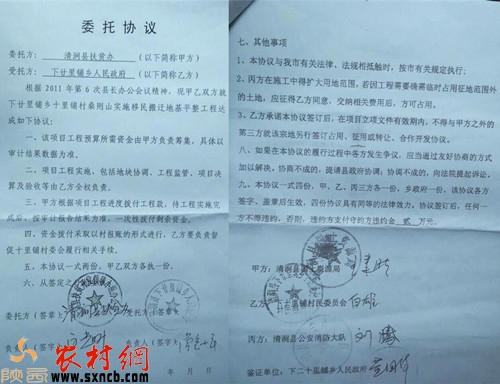 委托协议
委托方：清涧县扶贫办（以下简称甲方）
受托方：下廿里铺乡人民政府（以下简称乙方）
根据 2011 年第 6 次县长办公会议精神，现甲乙双方就
下廿里铺乡十里铺村桑则山实施移民搬迁地基平整工程达
成如下协议：
一、该项目工程预算所需资金由甲方负责筹集，具体以
审计结果数据为准。
二、项目工程实施，包括地块协调、工程监管、项目决
算及验收等由乙方全权负责。
三、甲方根据项目工程进度拨付工程款，待工程实施完
成后，按审计报告结果为准，一次性拨付剩余资金。
四、资金拨付采取以村报账的形式进行，乙方要负责督
促十里铺村委会履行相关手续。
五、本协议一式两份，甲乙双方各执一份。
六、从签定之
委托方（签章）
受托方（签章）
负责人（签字）
负责人（签字）
七、其他事项
1、本协议与我市有关法律、法规相抵触时，按市有关规定执行；
2、丙方在施工中得扩大用地范围，若因工程需要确需临时占用征地范围外
的土地，应征得乙方同意，交纳相关费用后，方可占用。
3、乙方承诺本协议签订后，在项目立项文件有效期内，不得与甲方之外的
第三方就该宗地另行签订占用、征用或转让、合作开发协议。
八、如果在本协议的履行过程中各方发生争议，应当通过友好协商的方式
加以解决。协商不成的，提请县政府协调；协调不成的，向法院提起诉讼。
九、本协议一式四份，甲、乙、丙三方各一份，乡政府一份，该协议各方
签字、盖章后生效，四份协议具有同等的法律效力。协议签订后，任何一
方不得违约，否则，违约方支付守约方违约金 贰 万元。
甲方：清涧县国土资源局
乙方：下廿里铺村民委员会 白雄
丙方：清涧县公安消防大队
鉴证单位：下二十里铺乡人民政府
陕西
农村网
www.sxncb.com